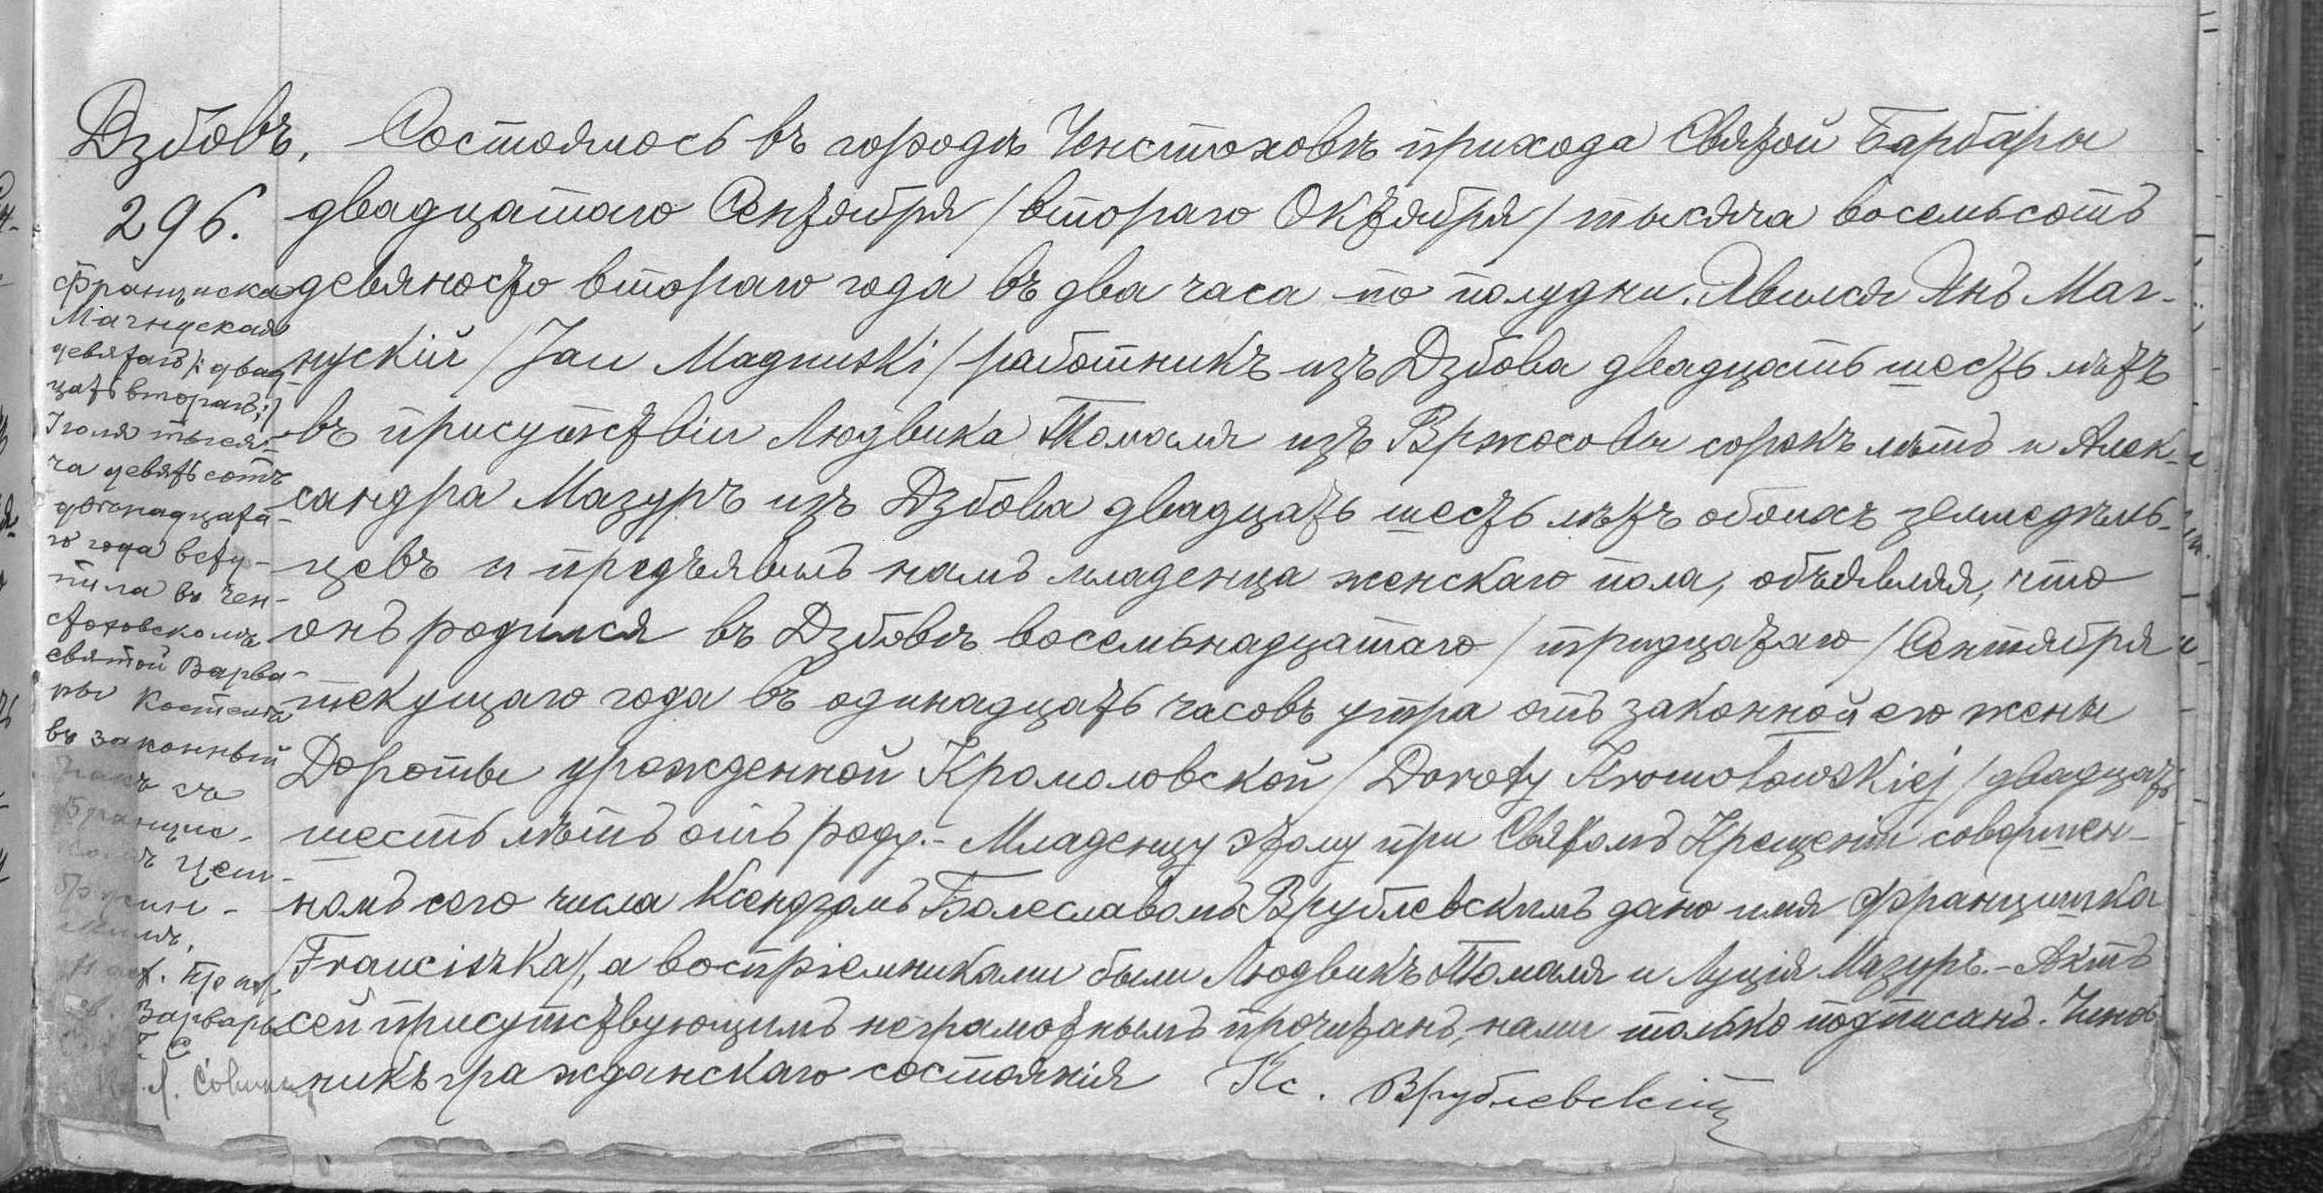 Дзбовъ.
296.
Франциска
Магнуская
девятаго /: двад-
цать втораго :/
Іюля тыся-
ча девятьсотъ
двѣнадцата-
го года всту-
пила въ Чен-
стоховскомъ
святой Варва-
ры костелѣ
въ законный
бракъ съ
Францис-
комъ
Варвары
Состоялось въ городѣ Ченстоховѣ прихода Святой Барбары
двадцатаго Сентября /втораго Октября/ тысяча восемьсотъ
девяносто втораго года въ два часа по полудни. Явился Янъ Маг-
нускій /Jan Magnuski/ работникъ изъ Дзбова двадцать шесть лѣтъ
въ присутствіи Людвика Томаля изъ Вржосовы сорокъ лѣтъ и Алек-
сандра Мазуръ изъ Дзбова двадцать шесть лѣтъ обоихъ земледѣль-
цевъ и предъявилъ намъ младенца женскаго пола, объявляя, что
онъ родился въ Дзбовѣ восемьнадцатаго /тридцатаго/ Сентября
текущаго года въ одинадцать часовъ утра отъ законной его жены
Дороты урожденной Кромоловской /Doroty Kromołowskiej/ двадцать
шесть лѣтъ отъ роду.- Младенцу этому при Святомъ Крещеніи совершен-
номъ сего числа Ксендзомъ Болеславомъ Врублевскимъ дано имя Францишка
/Franciszka/, а воспріемниками были Людвикъ Томаля и Луція Мазуръ.- Актъ
сей присутствующимъ неграмотнымъ прочитанъ, нами только подписанъ. Чинов-
никъ гражданскаго состоянія Кс. Врублевскій